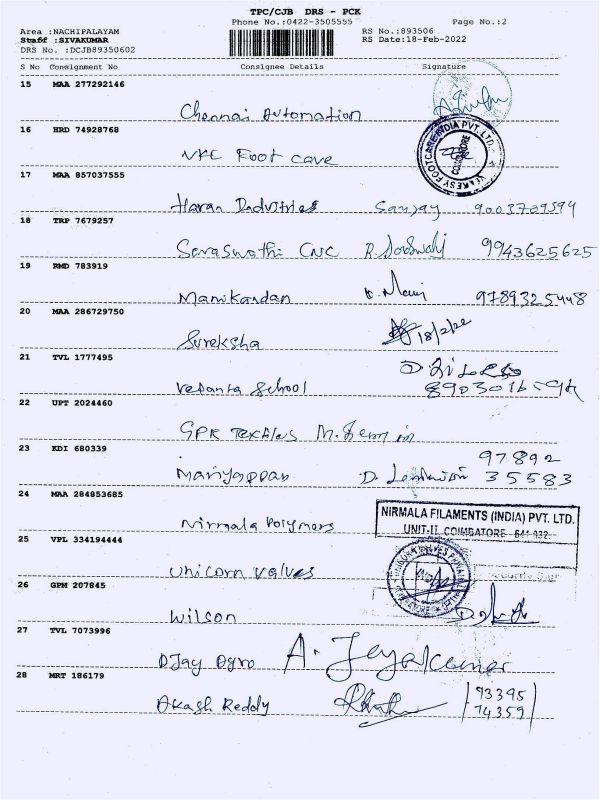 TPC/CJB DRS - PCK
Phone No.:0422-3505555
Page No.:2
Area :NACHIPALAYAM
Staff :SIVAKUMAR
DRS No. :DCJB89350602
RS No.:893506
RS Date:18-Feb-2022
S No Consignment No Consignee Details Signature
15 MAA 277292146
Chennai Automation
16 HRD 74928768
VKC Foot cave
VEEKESY FOOTCARE INDIA PVT. LTD.
COIMBATORE
17 MAA 857037555
Haran Industries Sanjay 9003709594
18 TRP 7679257
Saraswathi CNC 9943625625
19 RMD 783919
Manikandan D. Mani 9789325448
20 MAA 286729750
Sureksha 18/2/22
21 TVL 1777495
Vedanta School
22 UPT 2024460
GPR Textiles
23 KDI 680339
Mariyappan
97892
35583
24 MAA 284853685
Nirmala Polymers
NIRMALA FILAMENTS (INDIA) PVT. LTD.
UNIT-II, COIMBATORE - 641 032.
25 VPL 334194444
Unicorn Valves
26 GPM 207845
Wilson
27 TVL 7073996
DJay Agro A. Jeyakumar
28 MRT 186179
Akash Reddy
93395
74359